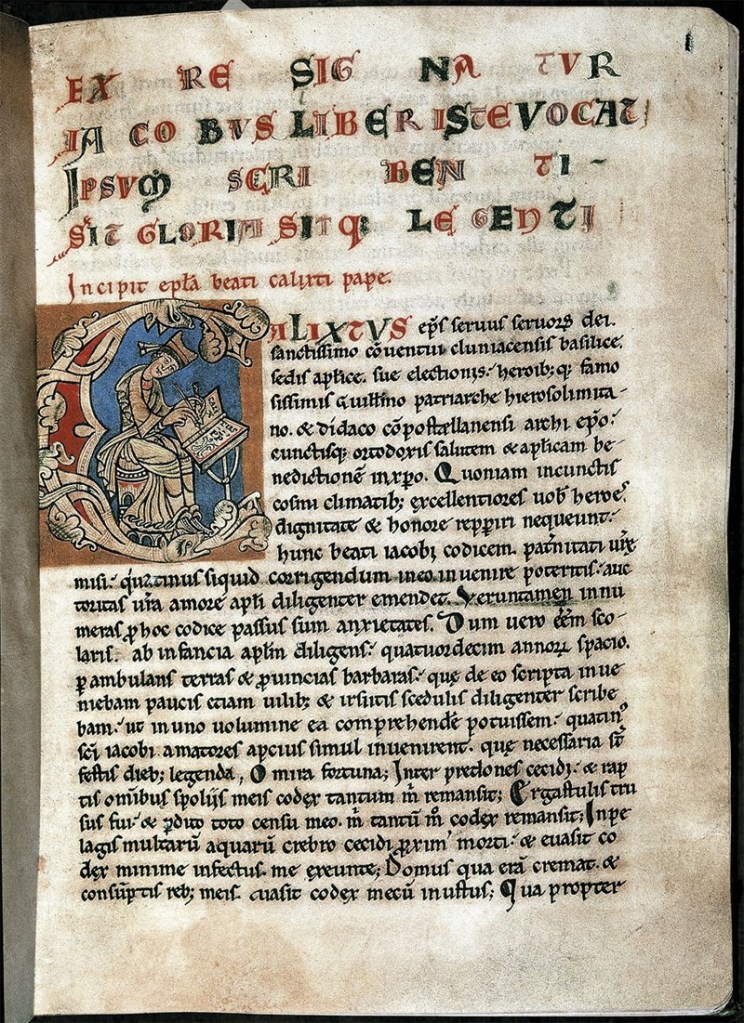 1
EX RE SIG NA TVR
IA CO BVS LIBER ISTE VOCAT
IPSVM SCRI BEN TI-
SIT GLORIA SITQ: LE GENTI
Incipit epl̄a beati calixti pape.
CALIXTVS ep̄s seruus seruoꝝ dei.
sanctissimo cōuentui cluniacensis basilice.
sedis aplice. sue electionis. heroib; q; famo
sissimis Guillmo patriarche hierosolimita-
no. & didaco cōpostellanensi archi ep̄o.
cunctisq; ortodoxis salutem & aplicam be-
nedictionē in xpo. Quoniam in cunctis
cosmi climatib; excellentiores uob heroes
dignitate & honore repperiri nequeunt.
hunc beati iacobi codicem. pat̄nitati ur̄e
misi. quatinus siquid corrigendum in eo inuenire poteritis. auc
toritas ur̄a amore apl̄i diligenter emendet. Veruntamen innu
meras ꝓ hoc codice passus sum anxietates. Dum uero eēm sco-
laris. ab infancia apl̄m diligens. quatuordecim annoꝝ spacio.
ꝑambulans terras & ꝓuincias barbaras. quę de eo scripta inue
niebam paucis etiam uilib; & irsutis scedulis diligenter scribe
bam. ut in uno uolumine ea comprehendē potuissem. quatin᷒
sc̄i iacobi amatores apcius simul inuenirent. quę necessaria st̄
festis dieb; legenda, O mira fortuna; Inter predones cecidi. & rap
tis omībus spolijs meis codex tantum m̄ remansit; Ergastulis tru
sus fui. & ꝑdito toto censu meo. m̄ tantū m̊ codex remansit; In pe
lagis multarū aquarū crebro cecidi ꝓxim᷒ morti. & euasit co
dex minime infectus. me exeunte; Domus qua erā cremat. &
consūptis reb; meis. euasit codex mecū inustus; Qua propter